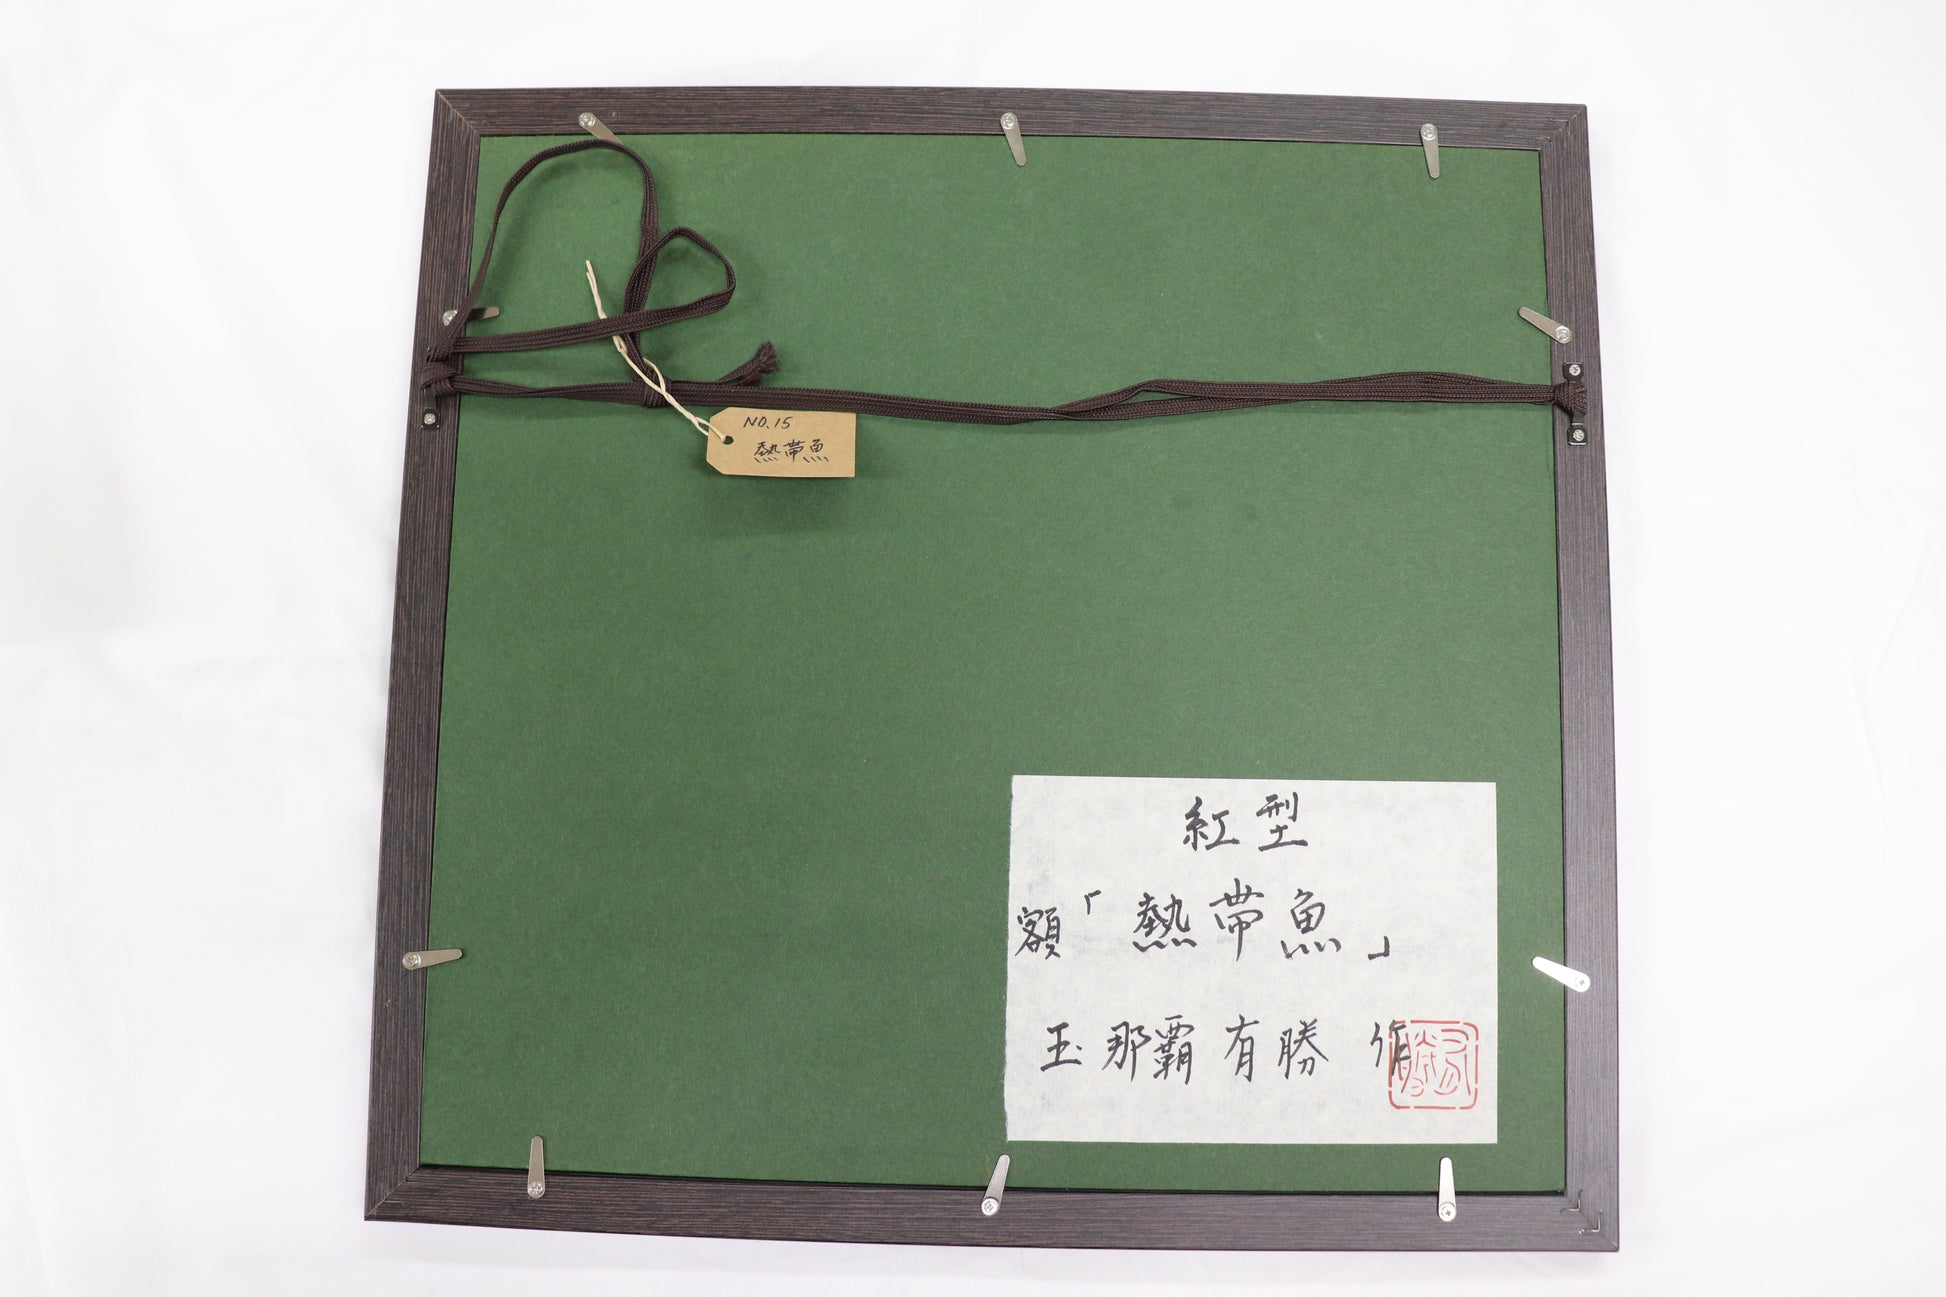 NO.15
熱帯魚
紅型
額「熱帯魚」
玉那覇有勝 作